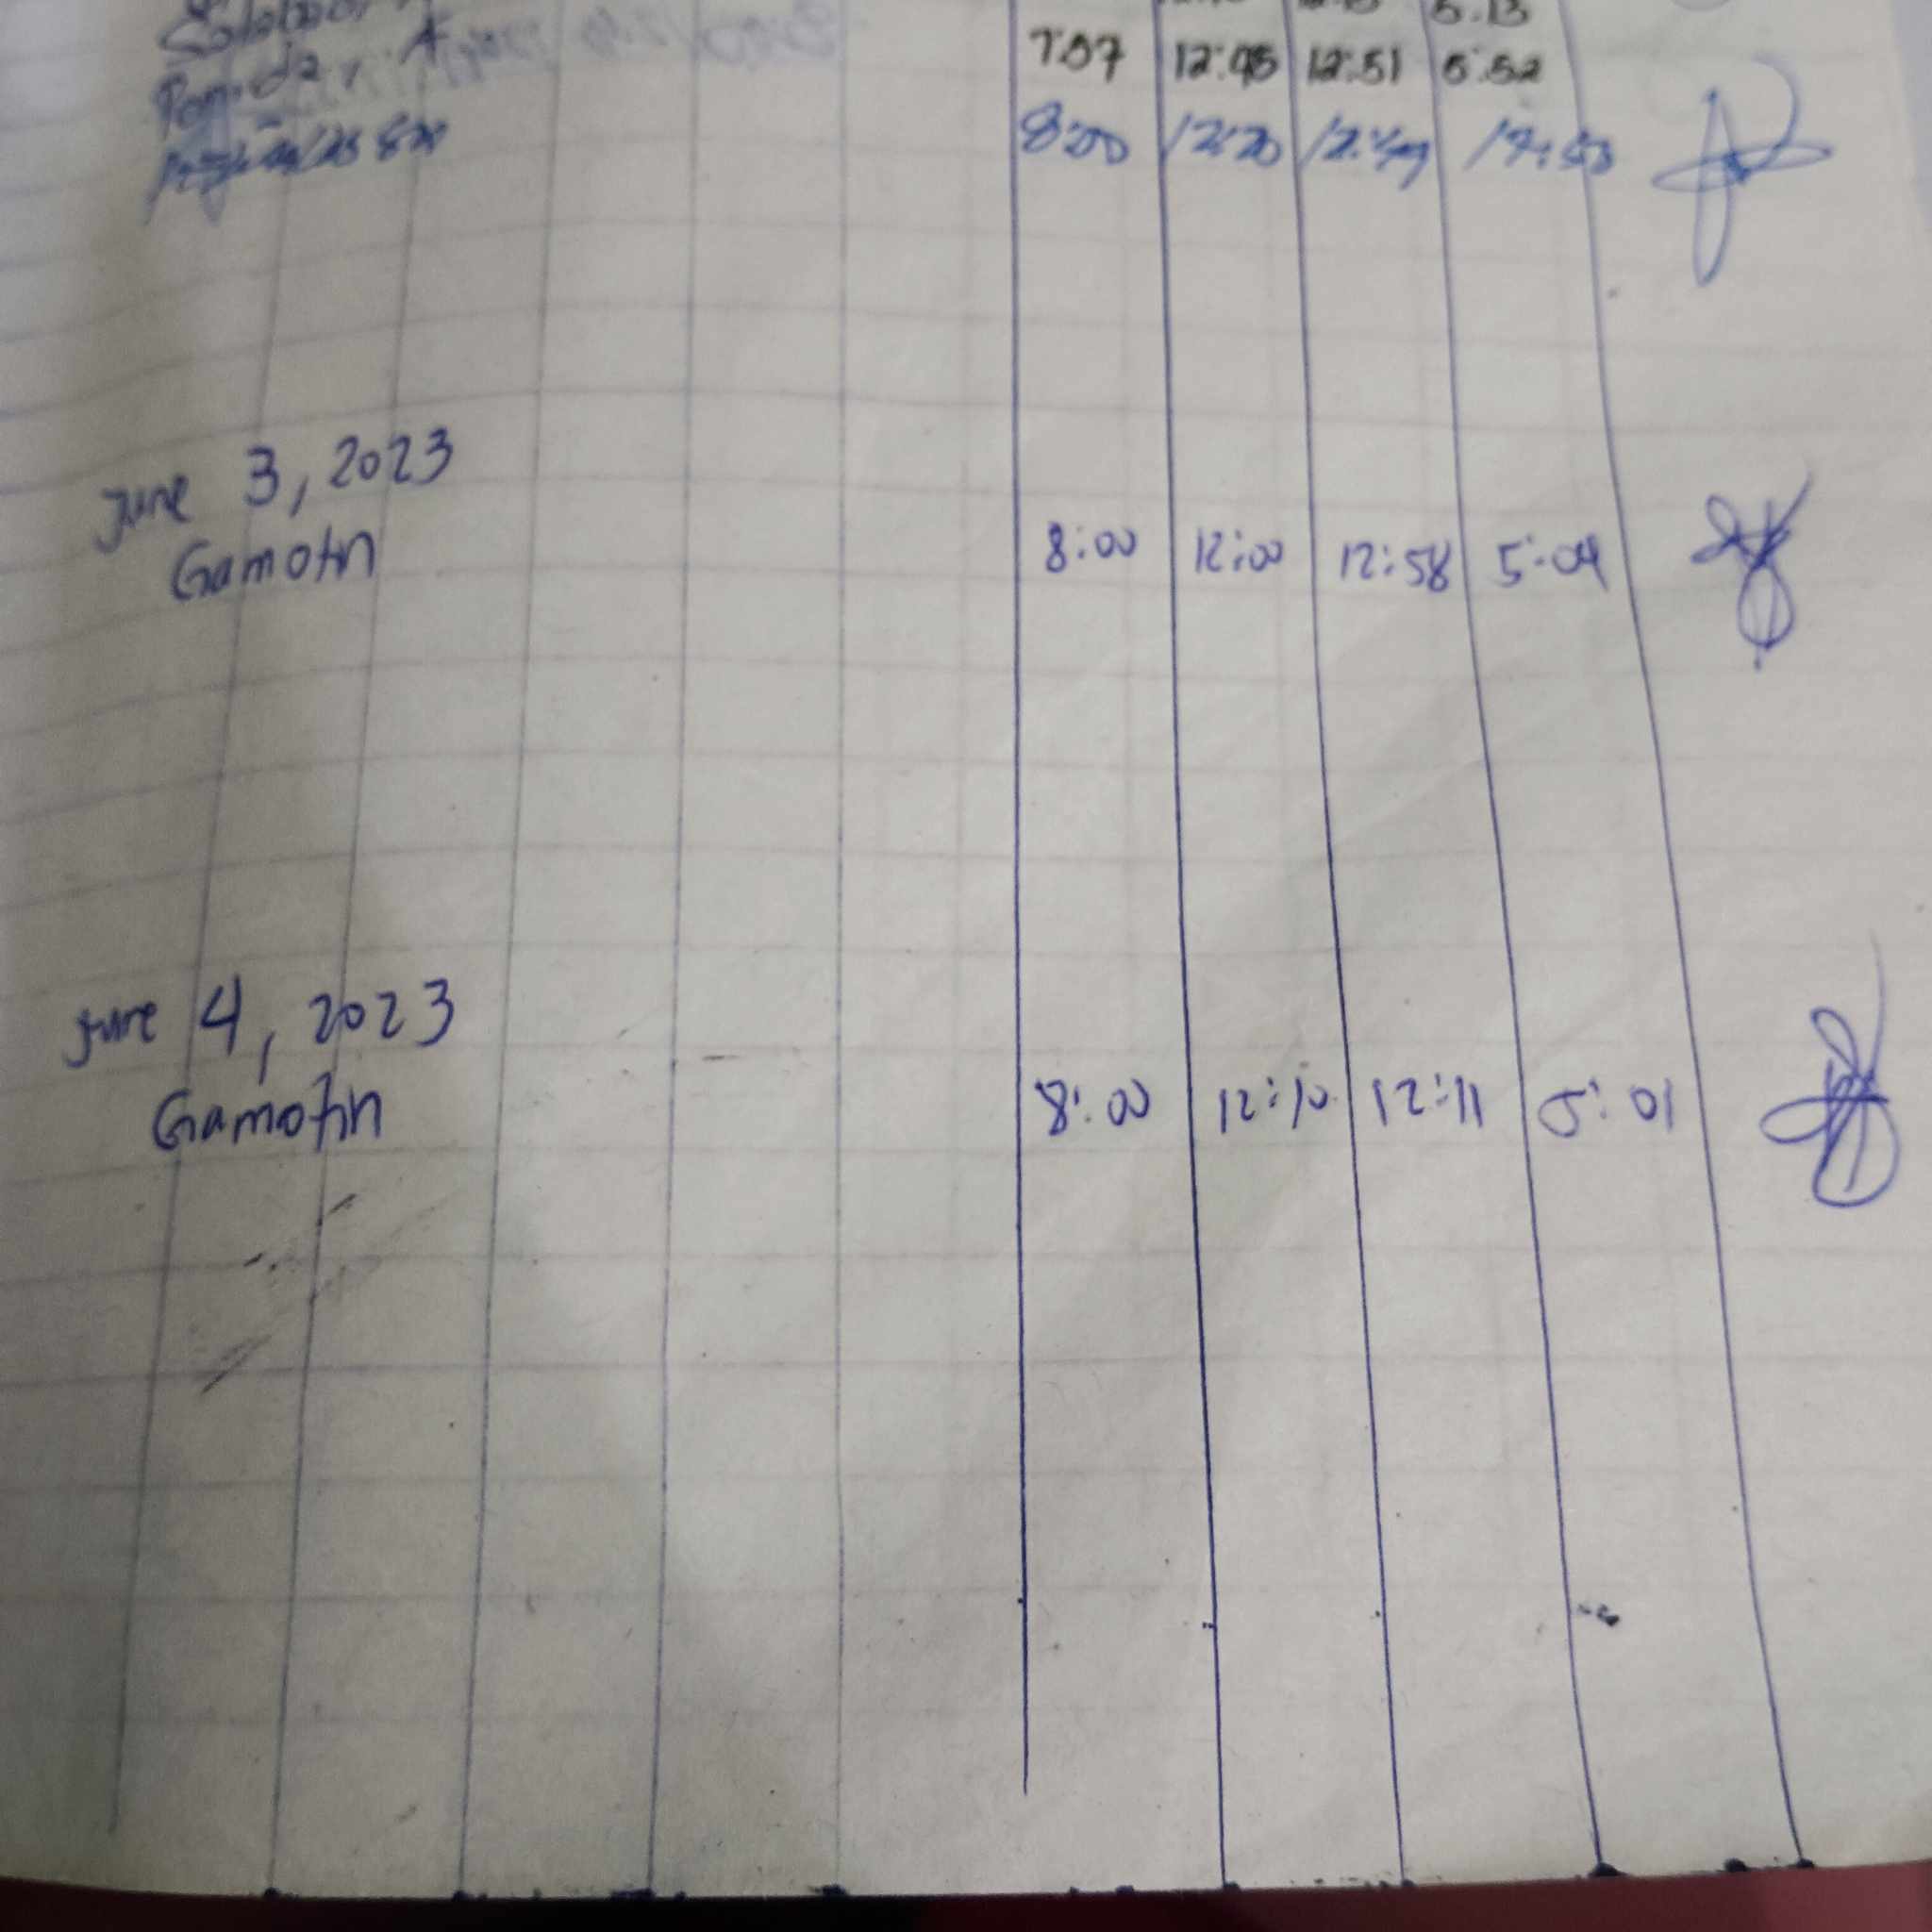 5:13
7:57 12:45 12:51 5:52
8:00 12:20 12:49 17:53
June 3, 2023
Gamotin 8:00 12:00 12:58 5:04
June 4, 2023
Gamotin 8:00 12:10 12:11 5:01